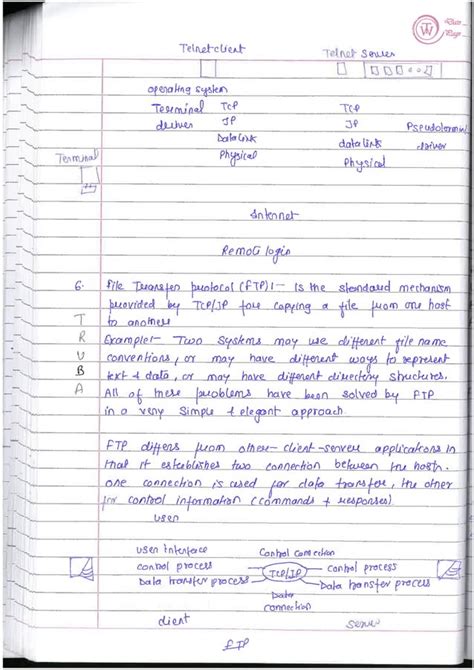 TW
Date
Page
Telnet client Telnet Server
operating system
Terminal TCP TCP
driver IP IP Pseudoterminal
Datalink datalink driver
Physical Physical
Terminal
Internet
Remote login
6. File Transfer protocol (FTP):- Is the standard mechanism
provided by TCP/IP for copying a file from one host
to another
Example:- Two systems may use different file name
conventions, or may have different ways to represent
text & data, or may have different directory structures.
All of these problems have been solved by FTP
in a very simple & elegant approach.
T
R
U
B
A
FTP differs from other client-server applications in
that it establishes two connection between the host.
one connection is used for data transfer, the other
for control information (commands & responses).
user
user interface Control connection
control process TCP/IP control process
Data transfer process Data transfer process
Data
connection
client server
FTP